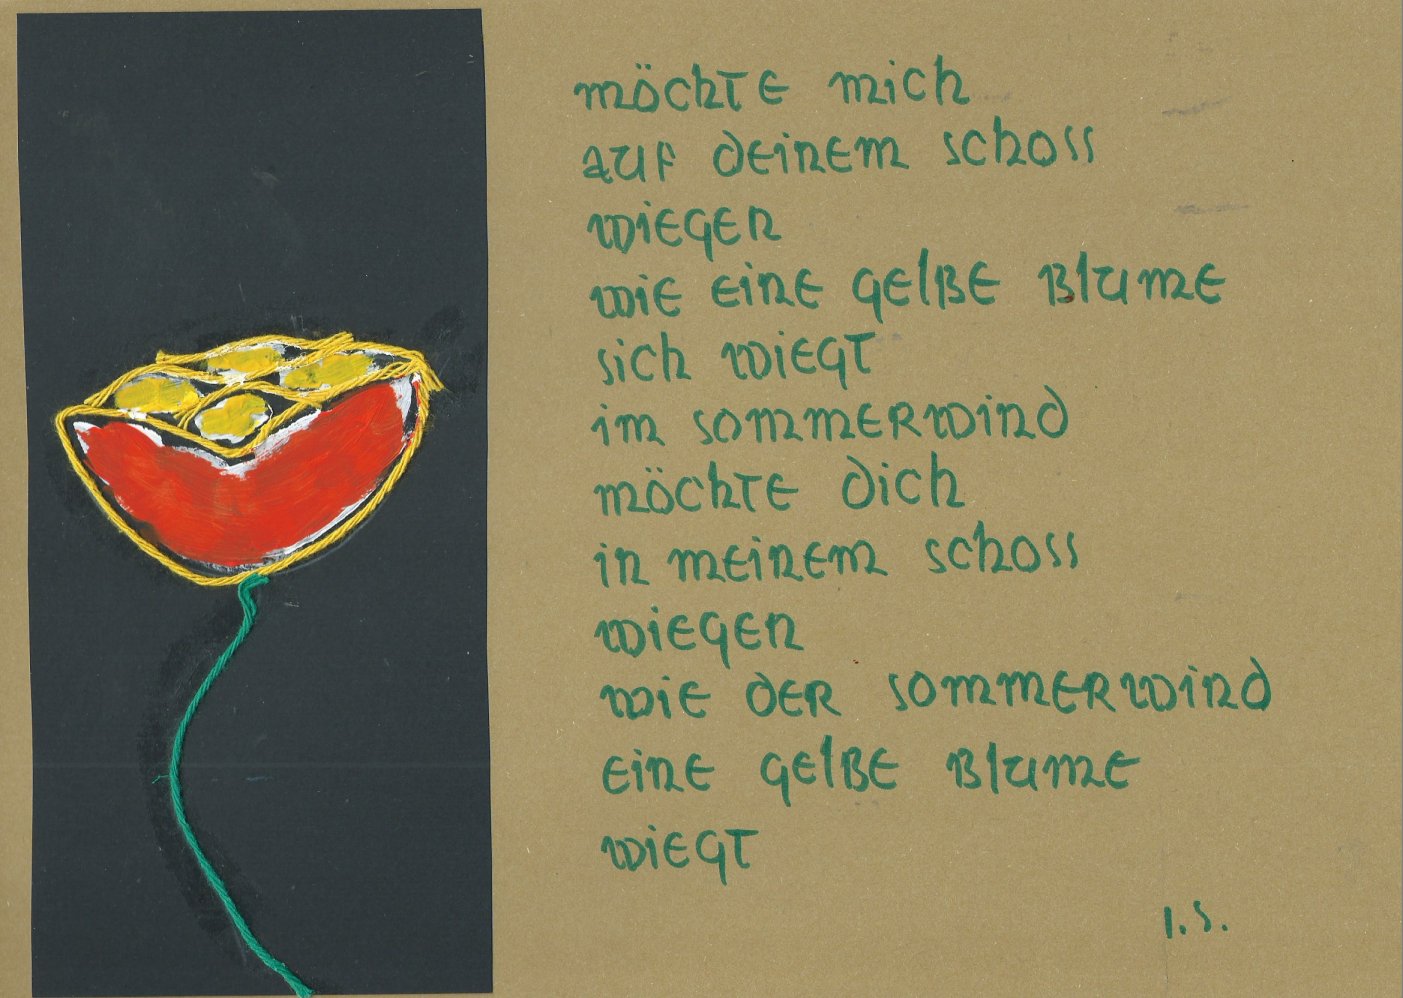 möchte mich
auf deinem schoss
wiegen
wie eine gelbe blume
sich wiegt
im sommerwind
möchte dich
in meinem schoss
wiegen
wie der sommerwind
eine gelbe blume
wiegt
I.S.